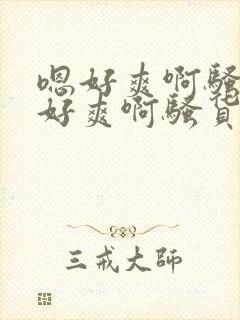 嗯好爽啊骚
好爽啊骚货
三戒大师